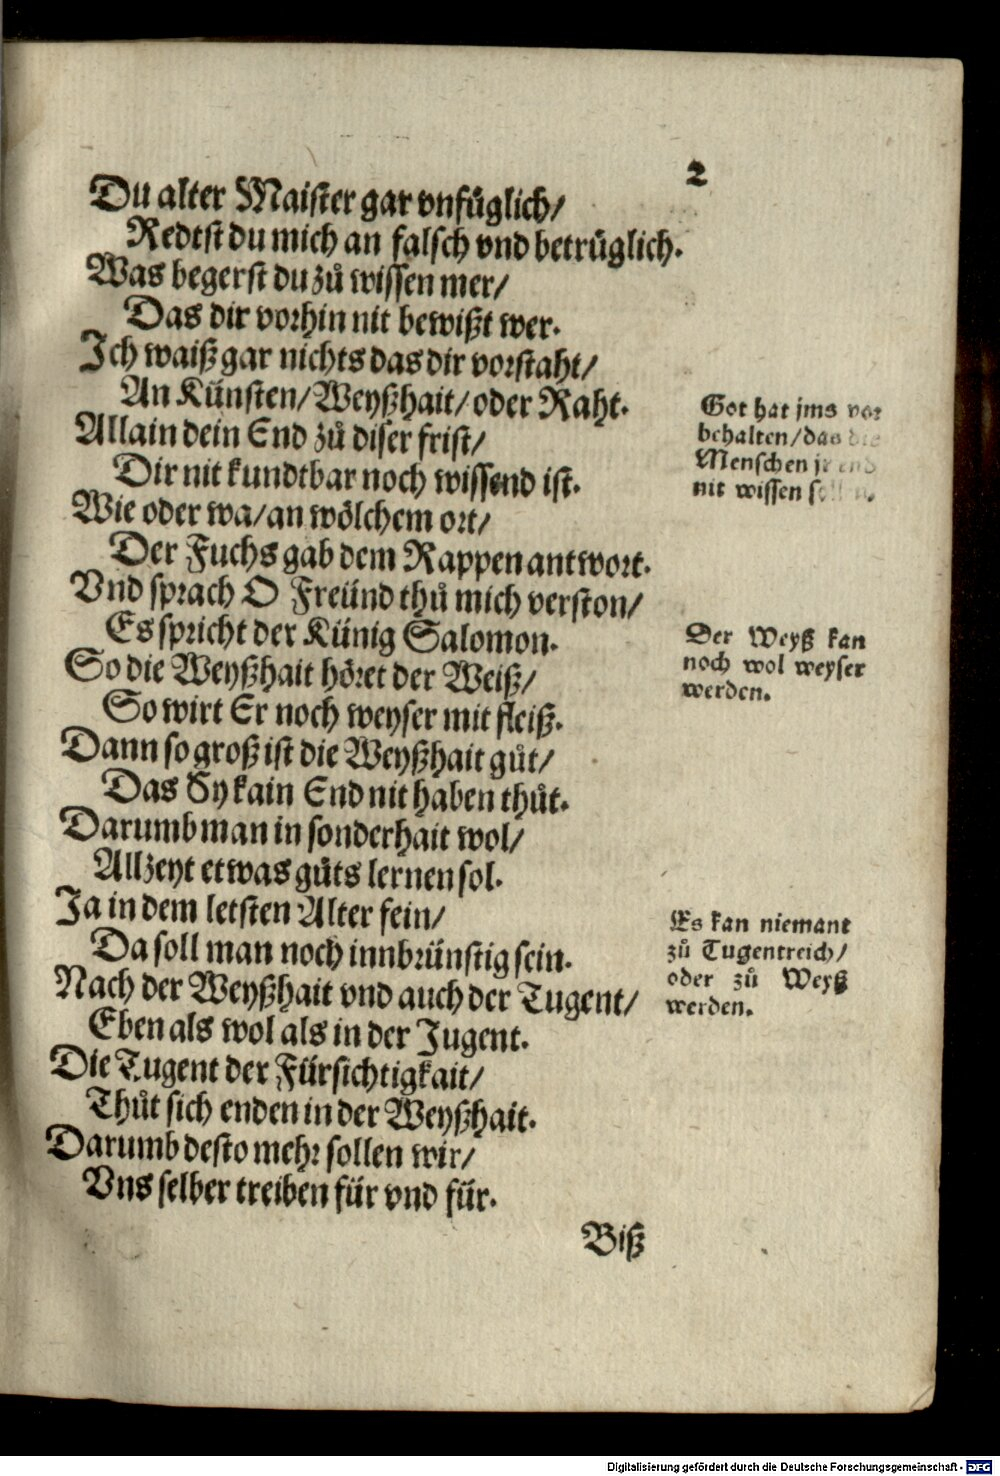 2
Du alter Maister gar vnfüglich/
Redtst du mich an falsch vnd betrüglich.
Was begerst du zů wissen mer/
Das dir vorhin nit bewißt wer.
Ich waiß gar nichts das dir vorstaht/
An Künsten/Weyßhait/oder Raht.
Allain dein End zů diser frist/
Dir nit kundtbar noch wissend ist.
Wie oder wa/an wölchem ort/
Der Fuchs gab dem Rappen antwort.
Vnd sprach O Freünd thů mich verston/
Es spricht der Künig Salomon.
So die Weyßhait höret der Weiß/
So wirt Er noch weyser mit fleiß.
Dann so groß ist die Weyßhait gůt/
Das Sy kain End nit haben thůt.
Darumb man in sonderhait wol/
Allzeyt etwas gůts lernen sol.
Ja in dem letsten Alter fein/
Da soll man noch innbrünstig sein.
Nach der Weyßhait vnd auch der Tugent/
Eben als wol als in der Jugent.
Die Tugent der Fürsichtigkait/
Thůt sich enden in der Weyßhait.
Darumb desto mehr sollen wir/
Vns selber treiben für vnd für.
Biß
Got hat jms vor
behalten/das die
Menschen jr end
nit wissen
Der Weyß kan
noch wol weyser
werden.
Es kan niemant
zů Tugentreich/
oder zů Weyß
werden.
Digitalisierung gefördert durch die Deutsche Forschungsgemeinschaft - DFG